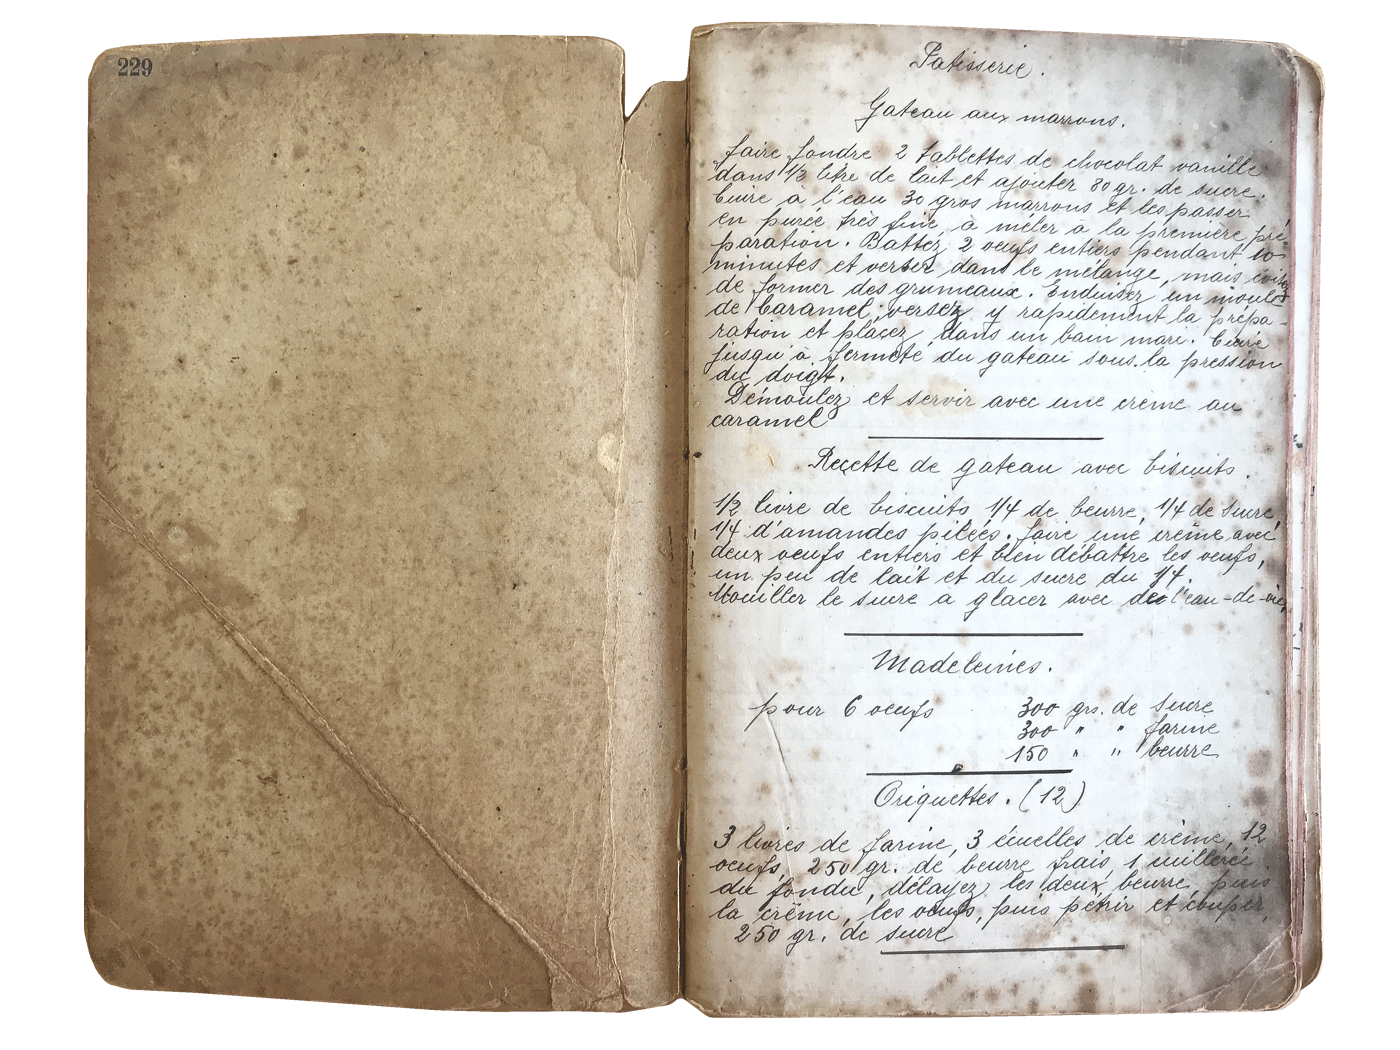 229
Patisserie.
Gateau aux marrons.
faire fondre 2 tablettes de chocolat vanille
dans 1/2 litre de lait et ajouter 80 gr. de sucre.
Cuire à l'eau 30 gros marrons et les passer
en purée très fine, à mêler à la première pré-
paration. Battez 2 oeufs entiers pendant 10
minutes et verser dans le mélange, mais évitez
de former des grumeaux. Enduisez un moule
de caramel, versez y rapidement la prépa-
ration et placez dans un bain mari. Cuire
jusqu'à fermeté du gateau sous la pression
du doigt.
Démoulez et servir avec une crème au
caramel
Recette de gateau avec biscuits.
1/2 livre de biscuits 1/4 de beurre, 1/4 de sucre,
1/4 d'amandes pilées. faire une crême avec
deux oeufs entiers et bien débattre les oeufs,
un peu de lait et du sucre du 1/4.
Mouiller le sucre a glacer avec de l'eau-de-vie,
Madeleines.
pour 6 oeufs 300 grs. de sucre
300 " " farine
150 " " beurre
Oriquettes. (12)
3 livres de farine, 3 écuelles de crème, 12
oeufs, 250 gr. de beurre frais, 1 cuillerée
du fondu, délayez les deux beurre, puis
la crême, les oeufs, puis pétrir et couper,
250 gr. de sucre